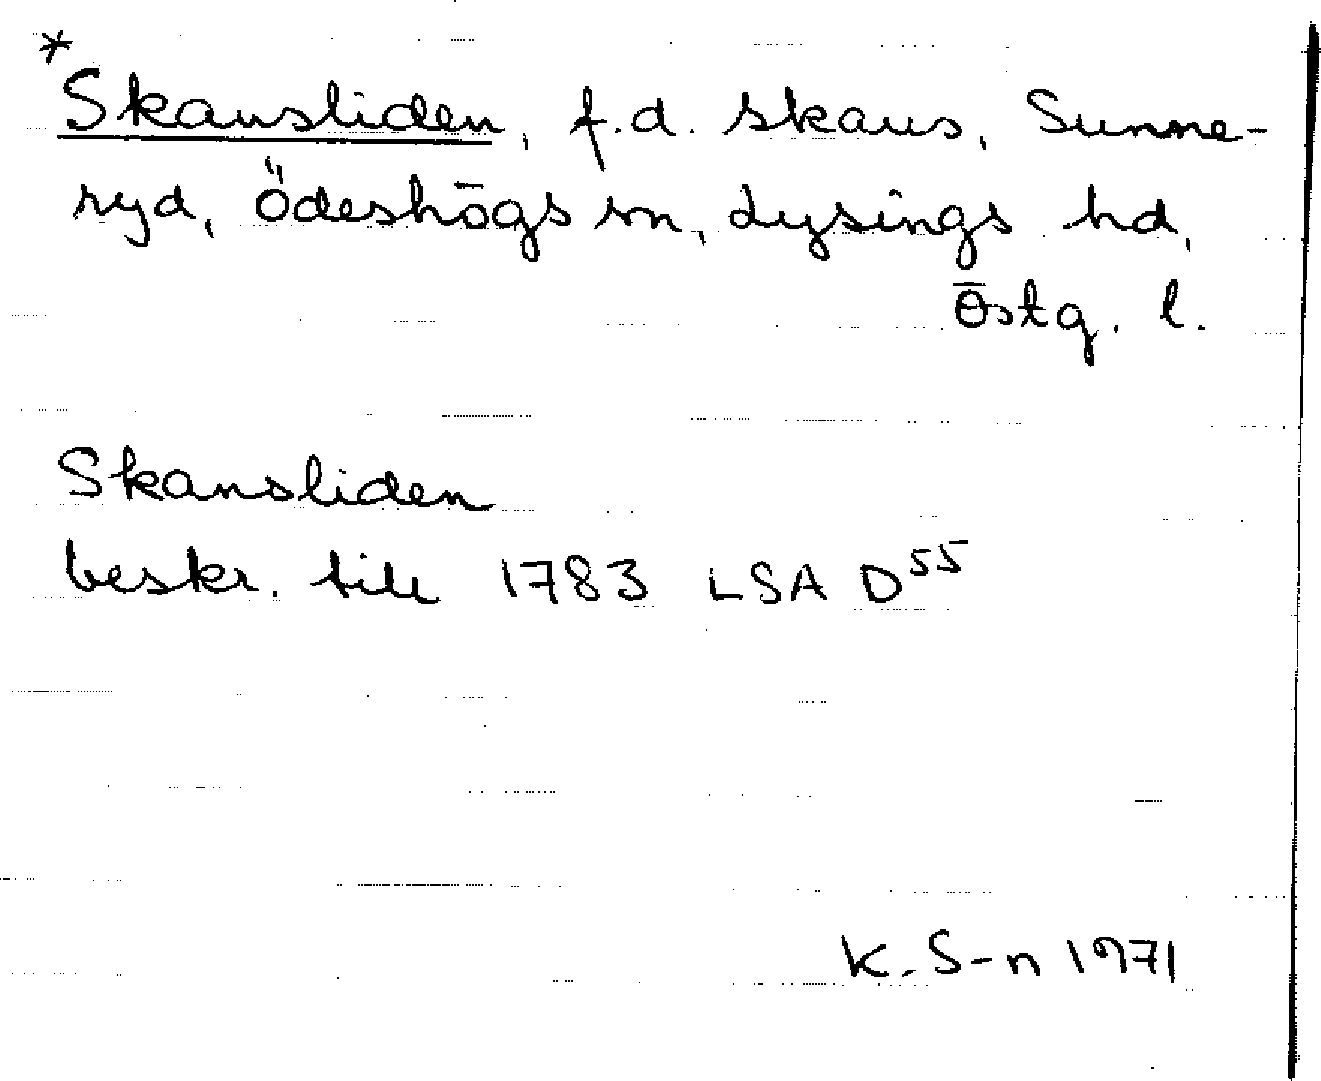 *
Skansliden, f.d. skans, Sunne-
ryd, Ödeshögs sn, Lysings hd,
Östg. l.
Skansliden
beskr. till 1783 LSA D55
K. S-n 1971